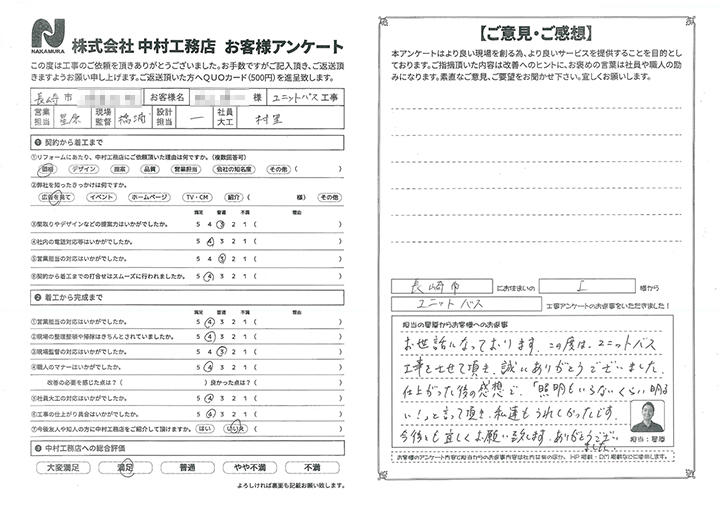 NAKAMURA
株式会社 中村工務店 お客様アンケート
この度は工事のご依頼を頂きありがとうございました。お手数ですがご記入頂き、ご返送頂
きますようお願い申し上げます。ご返送頂いた方へQUOカード(500円)を進呈致します。
長崎 市 お客様名 様 ユニットバス 工事
営業担当 星原 現場監督 橋浦 設計担当 ー 社員大工 村里
❶ 契約から着工まで
①リフォームにあたり、中村工務店にご依頼頂いた理由は何ですか。(複数回答可)
価格 デザイン 提案 品質 営業担当 会社の知名度 その他 ( )
②弊社を知ったきっかけは何ですか。
広告を見て イベント ホームページ TV・CM 紹介 ( 様) その他
満足 普通 不満 理由
③間取りやデザインなどの提案力はいかがでしたか。 5 4 3 2 1 ( )
④社内の電話対応等はいかがでしたか。 5 4 3 2 1 ( )
⑤営業担当の対応はいかがでしたか。 5 4 3 2 1 ( )
⑥契約から着工までの打合せはスムーズに行われましたか。 5 4 3 2 1 ( )
❷ 着工から完成まで
満足 普通 不満 理由
①営業担当の対応はいかがでしたか。 5 4 3 2 1 ( )
②現場の整理整頓や掃除はきちんとされていましたか。 5 4 3 2 1 ( )
③現場監督の対応はいかがでしたか。 5 4 3 2 1 ( )
④職人のマナーはいかがでしたか。 5 4 3 2 1 ( )
改善の必要を感じた点は?( )良かった点は?( )
⑤社員大工の対応はいかがでしたか。 5 4 3 2 1 ( )
⑥工事の仕上がり具合はいかがでしたか。 5 4 3 2 1 ( )
⑦今後友人や知人の方に中村工務店をご紹介して頂けますか。 はい いいえ ( )
❸ 中村工務店への総合評価
大変満足 満足 普通 やや不満 不満
よろしければ裏面も記載お願い致します。
【ご意見・ご感想】
本アンケートはより良い現場を創る為、より良いサービスを提供することを目的とし
ております。ご指摘頂いた内容は改善へのヒントに、お褒めの言葉は社員や職人の励
みになります。素直なご意見、ご要望をお聞かせ下さい。宜しくお願いします。
長崎市 にお住まいの I 様から
ユニットバス 工事アンケートのお返事をいただきました!
担当の星原からお客様へのお返事
お世話になっております。この度は、ユニットバス
工事をさせて頂き、誠にありがとうございました。
仕上がった後の感想で、「照明もいらないくらい明る
い!」と言って頂き、私達もうれしかったです。
今後とも宜しくお願い致します。ありがとうござい
ました。
担当:星原